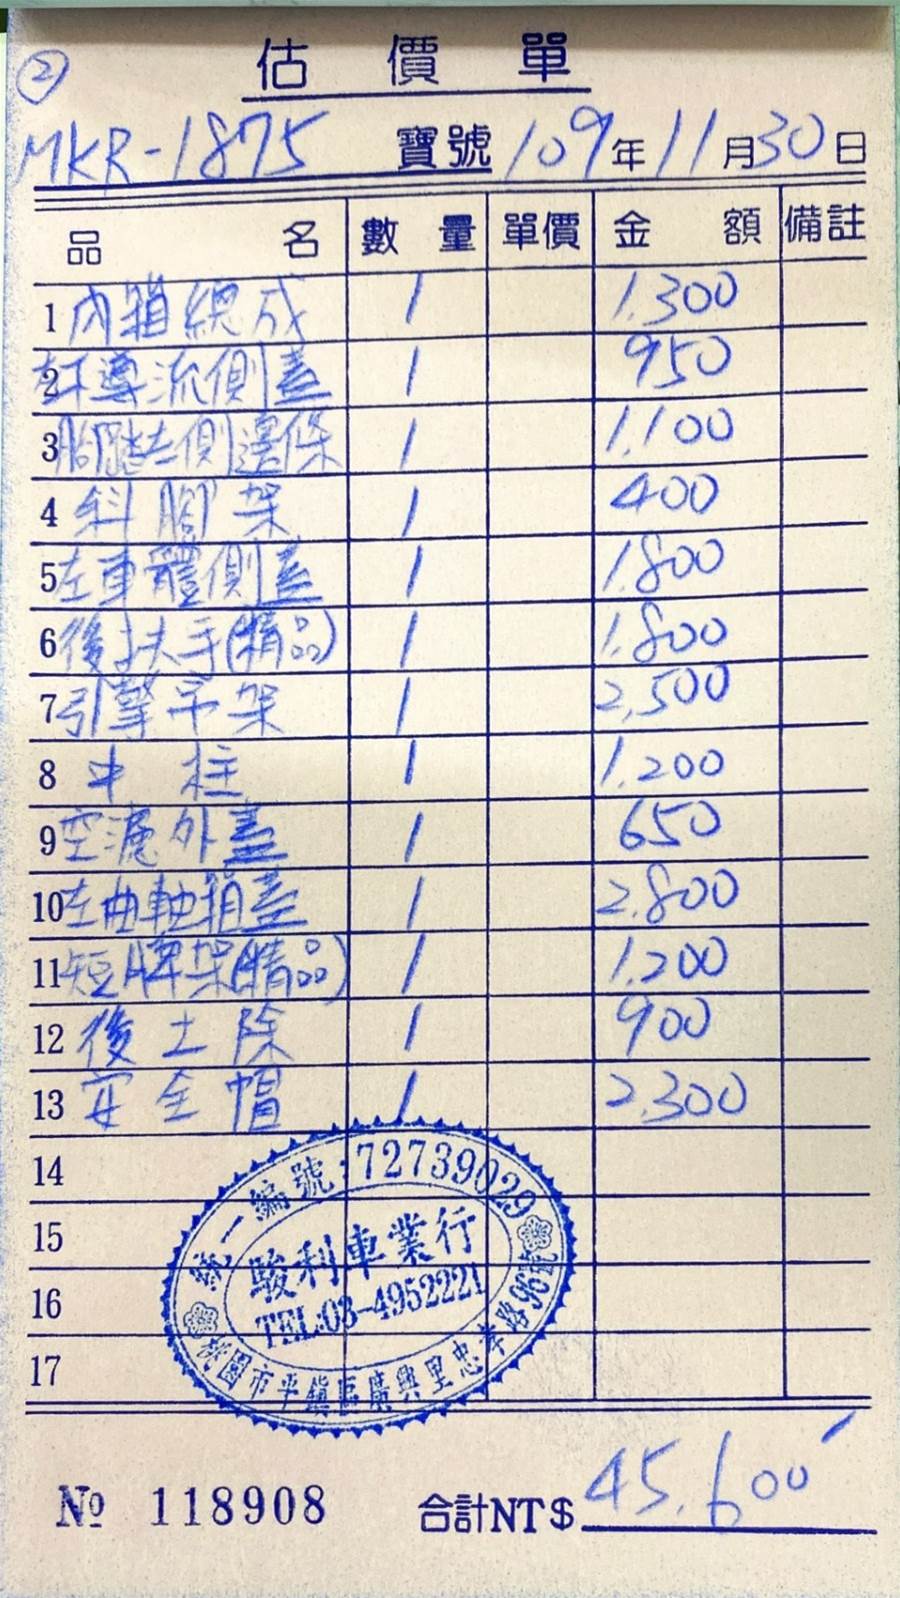 ②
估價單
MKR-1875 寶號 109年11月30日
品名 數量 單價 金額 備註
1 內箱總成 1 1.300
2 右導流側蓋 1 950
3 腳踏左側邊條 1 1,100
4 斜腳架 1 400
5 左車體側蓋 1 1.800
6 後扶手(精品) 1 1.800
7 引擎吊架 1 2,500
8 中柱 1 1.200
9 空濾外蓋 1 650
10 左曲軸箱蓋 1 2.800
11 短牌架(精品) 1 1.200
12 後土除 1 900
13 安全帽 1 2.300
14
15
16
17
統一編號:72739029
駿利車業行
TEL:03-4952221
桃園市平鎮區廣興里忠孝路96號
№ 118908 合計NT$ 45,600